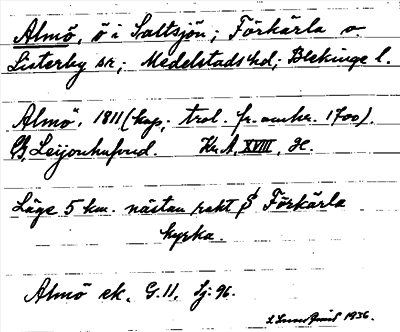 Almö, ö i Saltsjön; Förkärla o.
Listerby sr; Medelstads hd; Blekinge l.
Almö, 1811 (kop; trol. fr. omkr. 1700).
G. Leijonhufvud. Kr. A, XVIII, H.
Läge 5 km. nästan rakt S Förkärla
kyrka.
Almö ek, G. 11, Sj: 96.
1936.